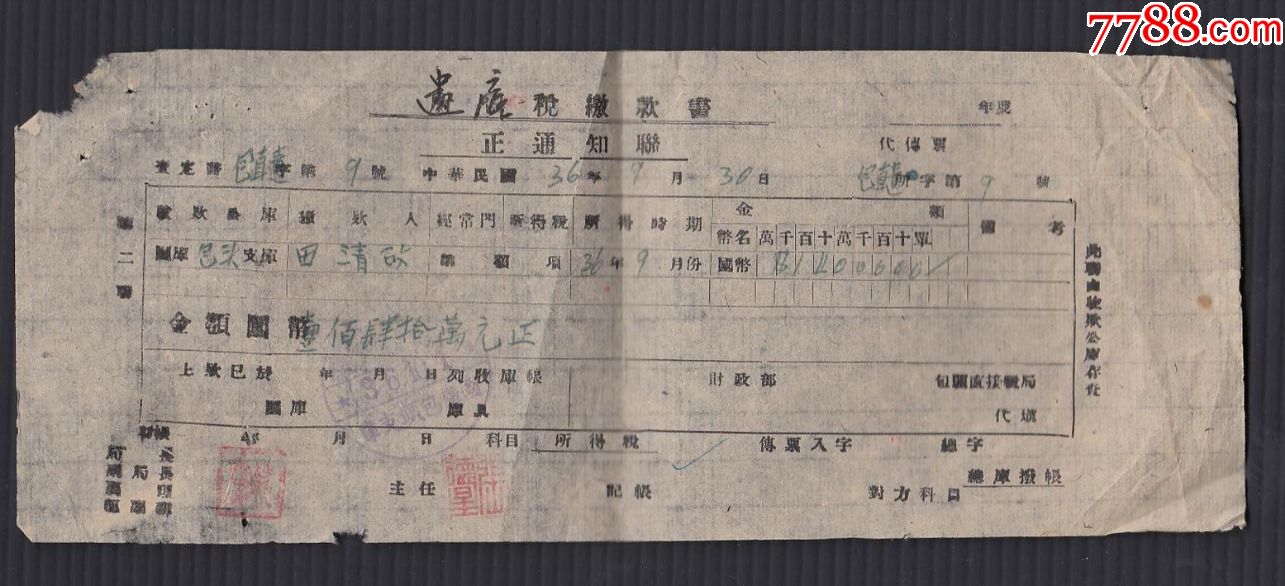 7788.com
遺產 稅繳款書
年度
正通知聯
代傳票
查定時 字第 9 號 中華民國 36 年 9 月 30 日 所字第 9 號
第二聯
收款公庫 繳款人 經常門 所得稅 所得時期 金額 備考
幣名 萬千百十萬千百十單
國庫 包头 支庫 田清 類 項 36 年 9 月份 國幣 $1400000
金額國幣 壹佰肆拾萬元正
上款已於 年 月 日列收庫帳 財政部 包頭直接稅局
國庫 庫長 代填
此聯由收款公庫存查
年 月 日 科目 所得稅 傳票入字 總字
主任 記帳 對方科目 總庫撥帳
局長